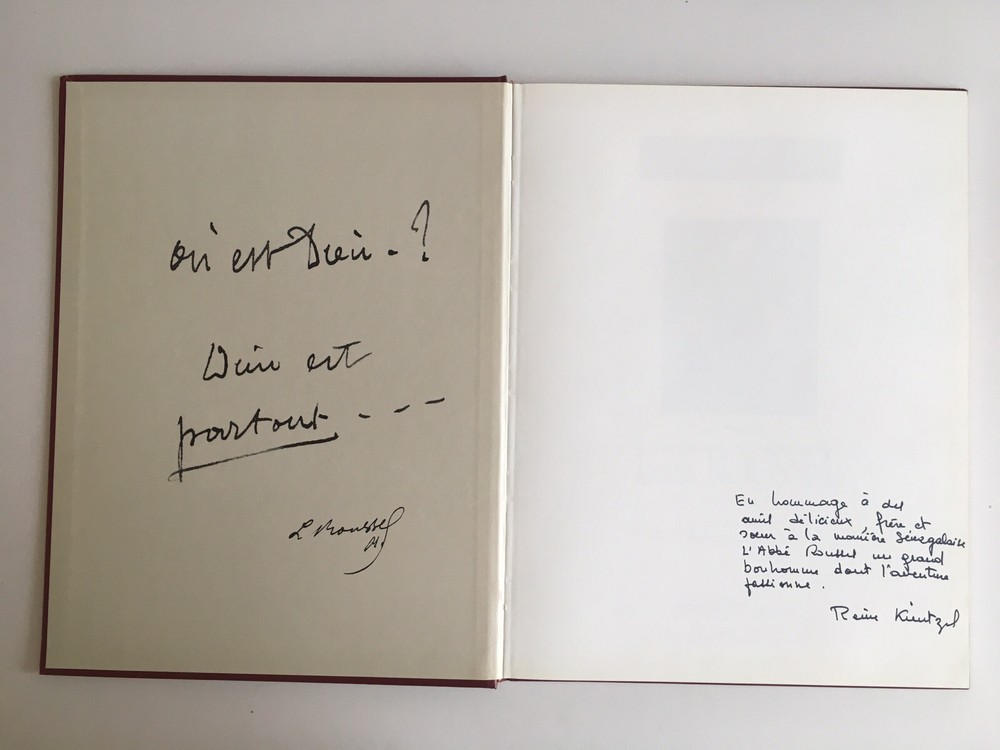 où est Dieu - ?
Dieu est
partout - - -
L Roussel
En hommage à des
amis délicieux, frère et
sœur à la manière sénégalaise
L'Abbé Roussel un grand
bonhomme dont l'aventure
passionne.
Reine Kientzel